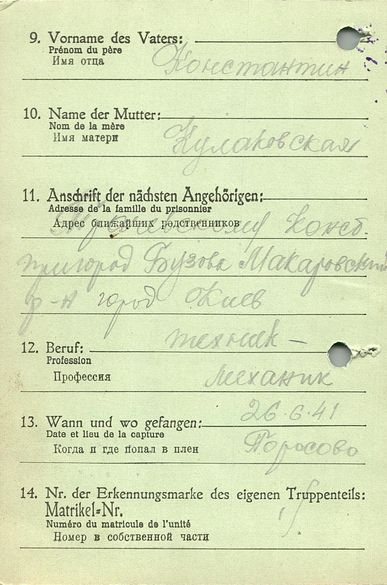 9. Vorname des Vaters:
Prénom du père
Имя отца
Константин
10. Name der Mutter:
Nom de la mère
Имя матери
Кулаковская
11. Anschrift der nächsten Angehörigen:
Adresse de la famille du prisonnier
Адрес ближайших родственников
Конст.
пригород Бузова Макаровский
р-н город Киев
12. Beruf:
техник -
Profession
Профессия
механик
13. Wann und wo gefangen:
26.6.41
Date et lieu de la capture
Когда и где попал в плен
Поросово
14. Nr. der Erkennungsmarke des eigenen Truppenteils:
Matrikel-Nr.
Numéro du matricule de l'unité
Номер в собственной части